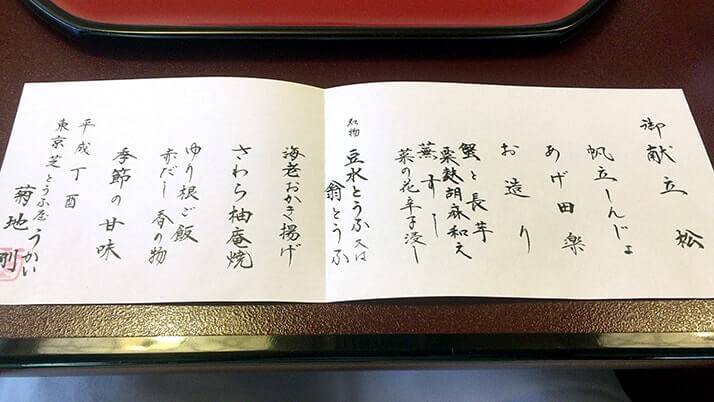 御献立 松
帆立しんじょ
あげ田楽
お造り
蟹と長芋
粟麸胡麻和え
蕪すし
菜の花辛子浸し
名物 豆水とうふ 又は
翁とうふ
海老おかき揚げ
さわら柚庵焼
ゆり根ご飯
赤だし 香の物
季節の甘味
平成丁酉
東京芝とうふ屋うかい
菊地 剛